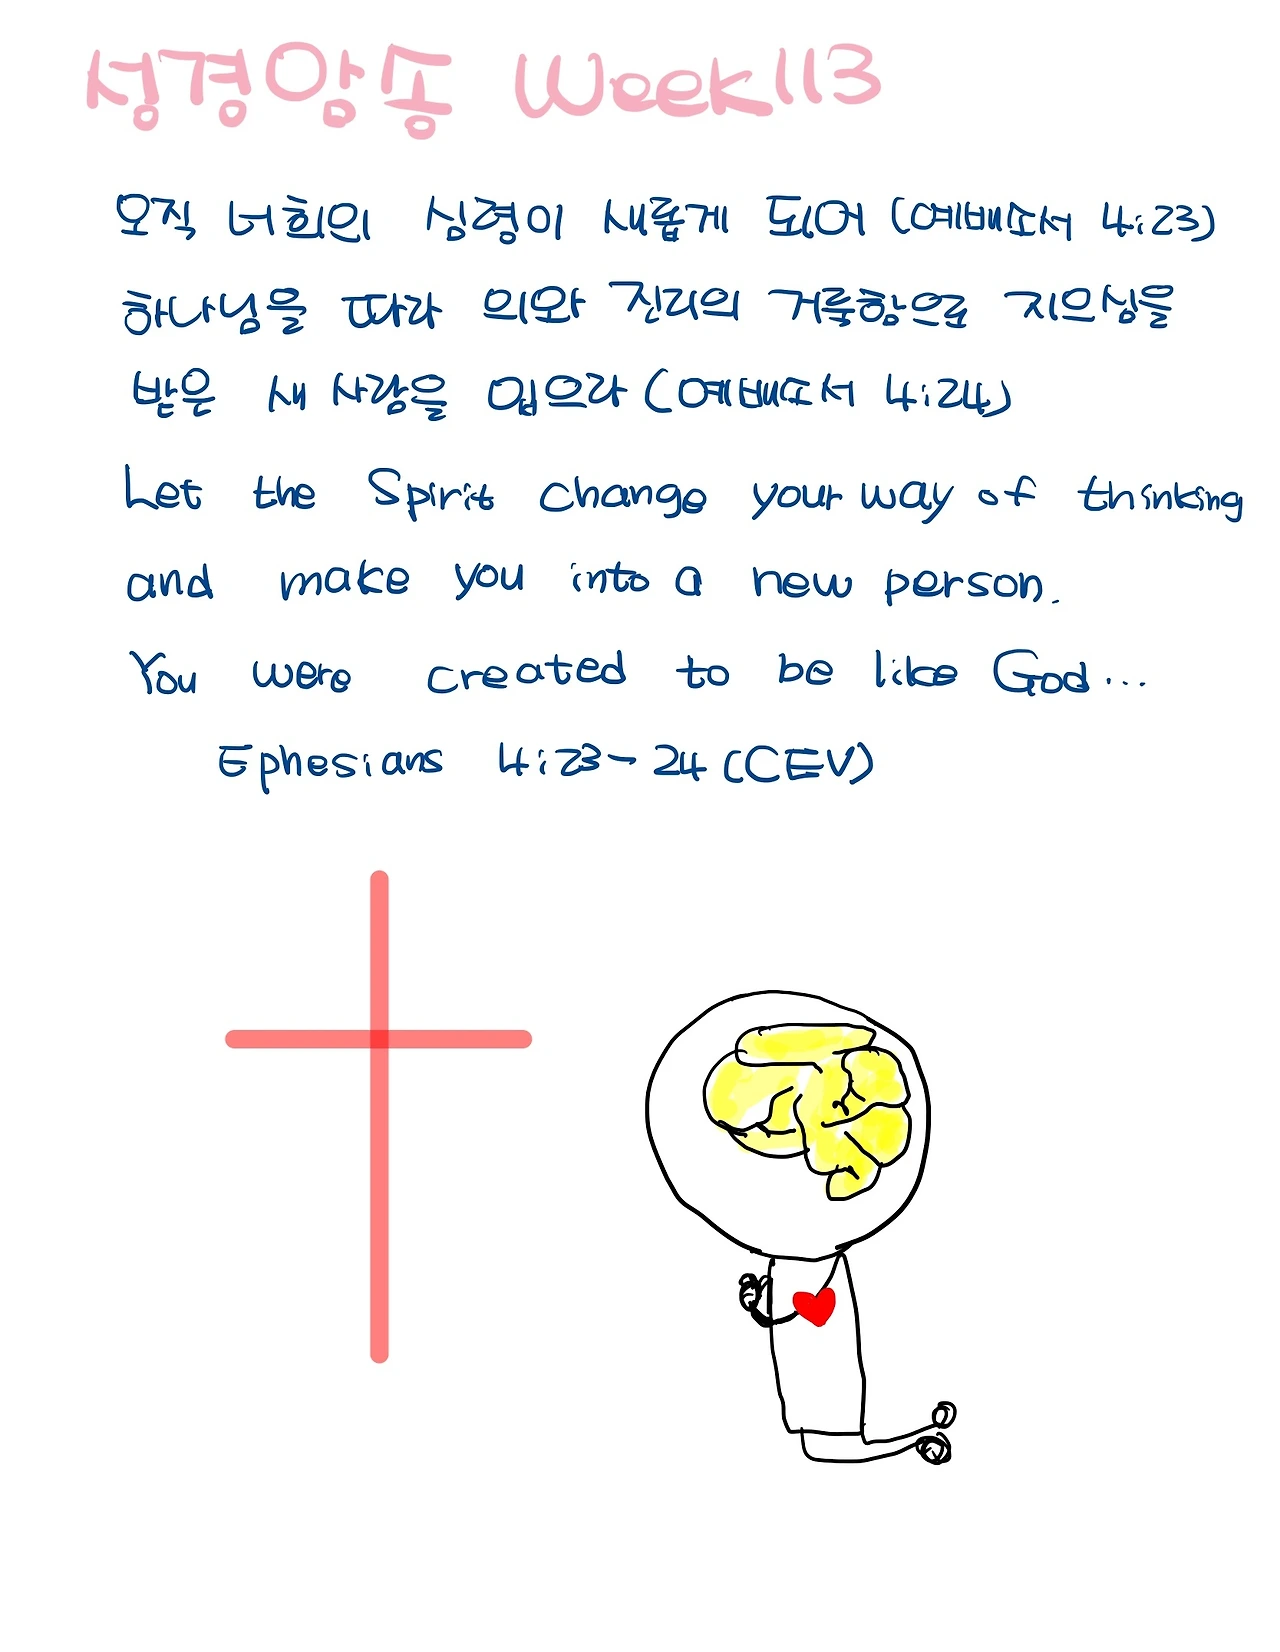 성경암송 Week113
오직 너희의 심령이 새롭게 되어 (에베소서 4:23)
하나님을 따라 의와 진리의 거룩함으로 지으심을
받은 새 사람을 입으라 (에베소서 4:24)
Let the Spirit change your way of thinking
and make you into a new person.
You were created to be like God...
Ephesians 4:23-24 (CEV)